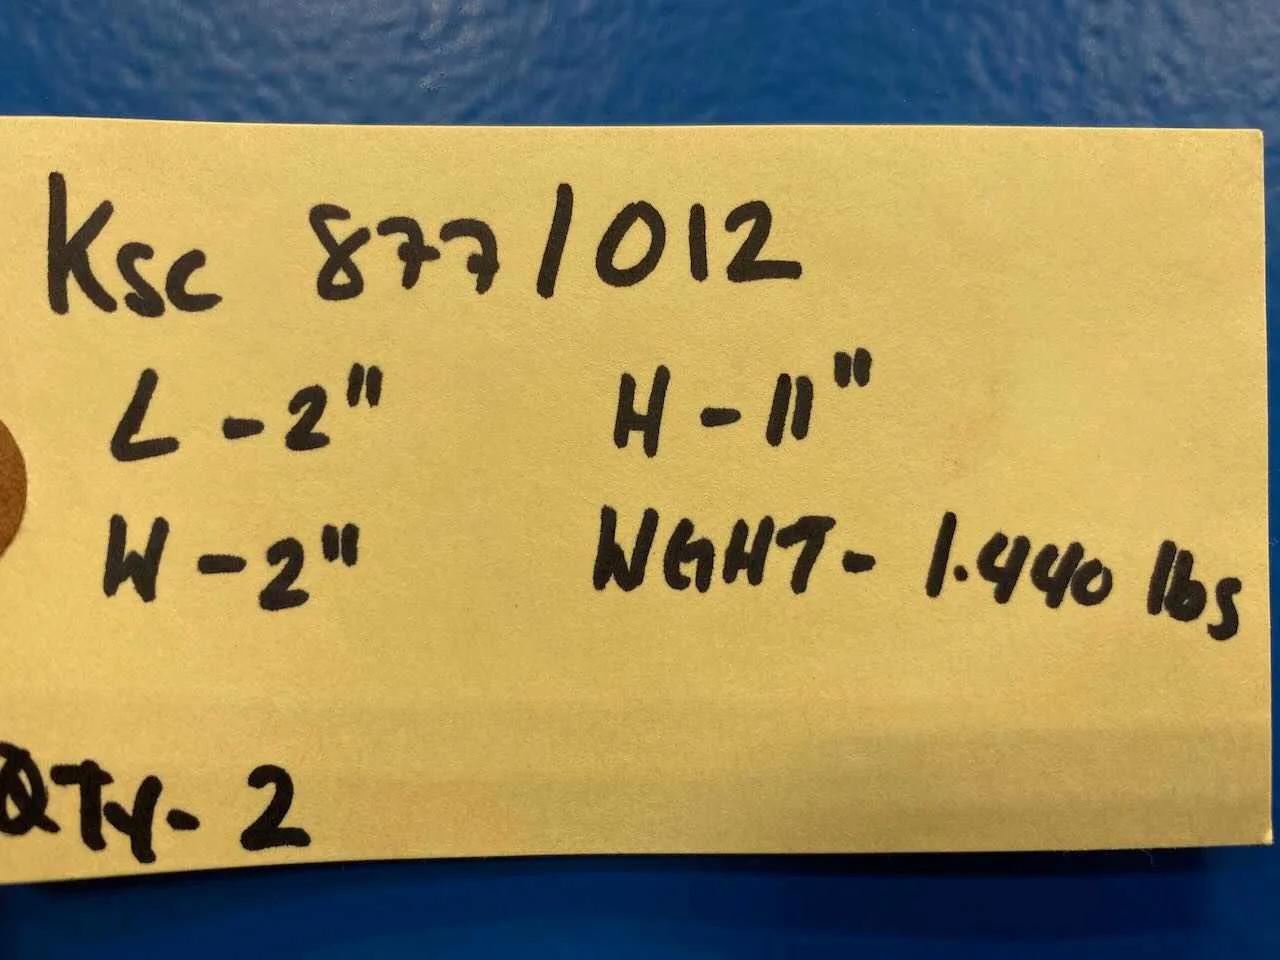 Ksc 877/012
L - 2" H - 11"
W - 2" WGHT - 1.440 lbs
QTY - 2